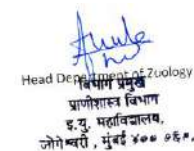 Head Department of Zoology
विभाग प्रमुख
प्राणीशास्त्र विभाग
इ.यु. महाविद्यालय,
जोगेश्वरी, मुंबई ४०००६०.